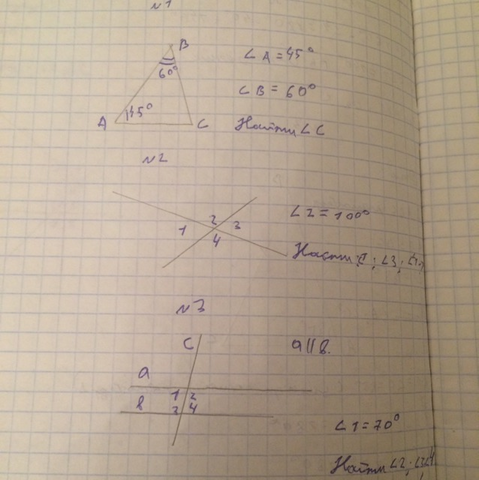 N1
B
60°
A 45° C
∠A = 45°
∠B = 60°
Найти ∠C
N2
1 2 3 4
∠2 = 100°
Найти ∠3;
N3
C
a
в
1 2
3 4
a || в.
∠1 = 70°
Найти ∠2;